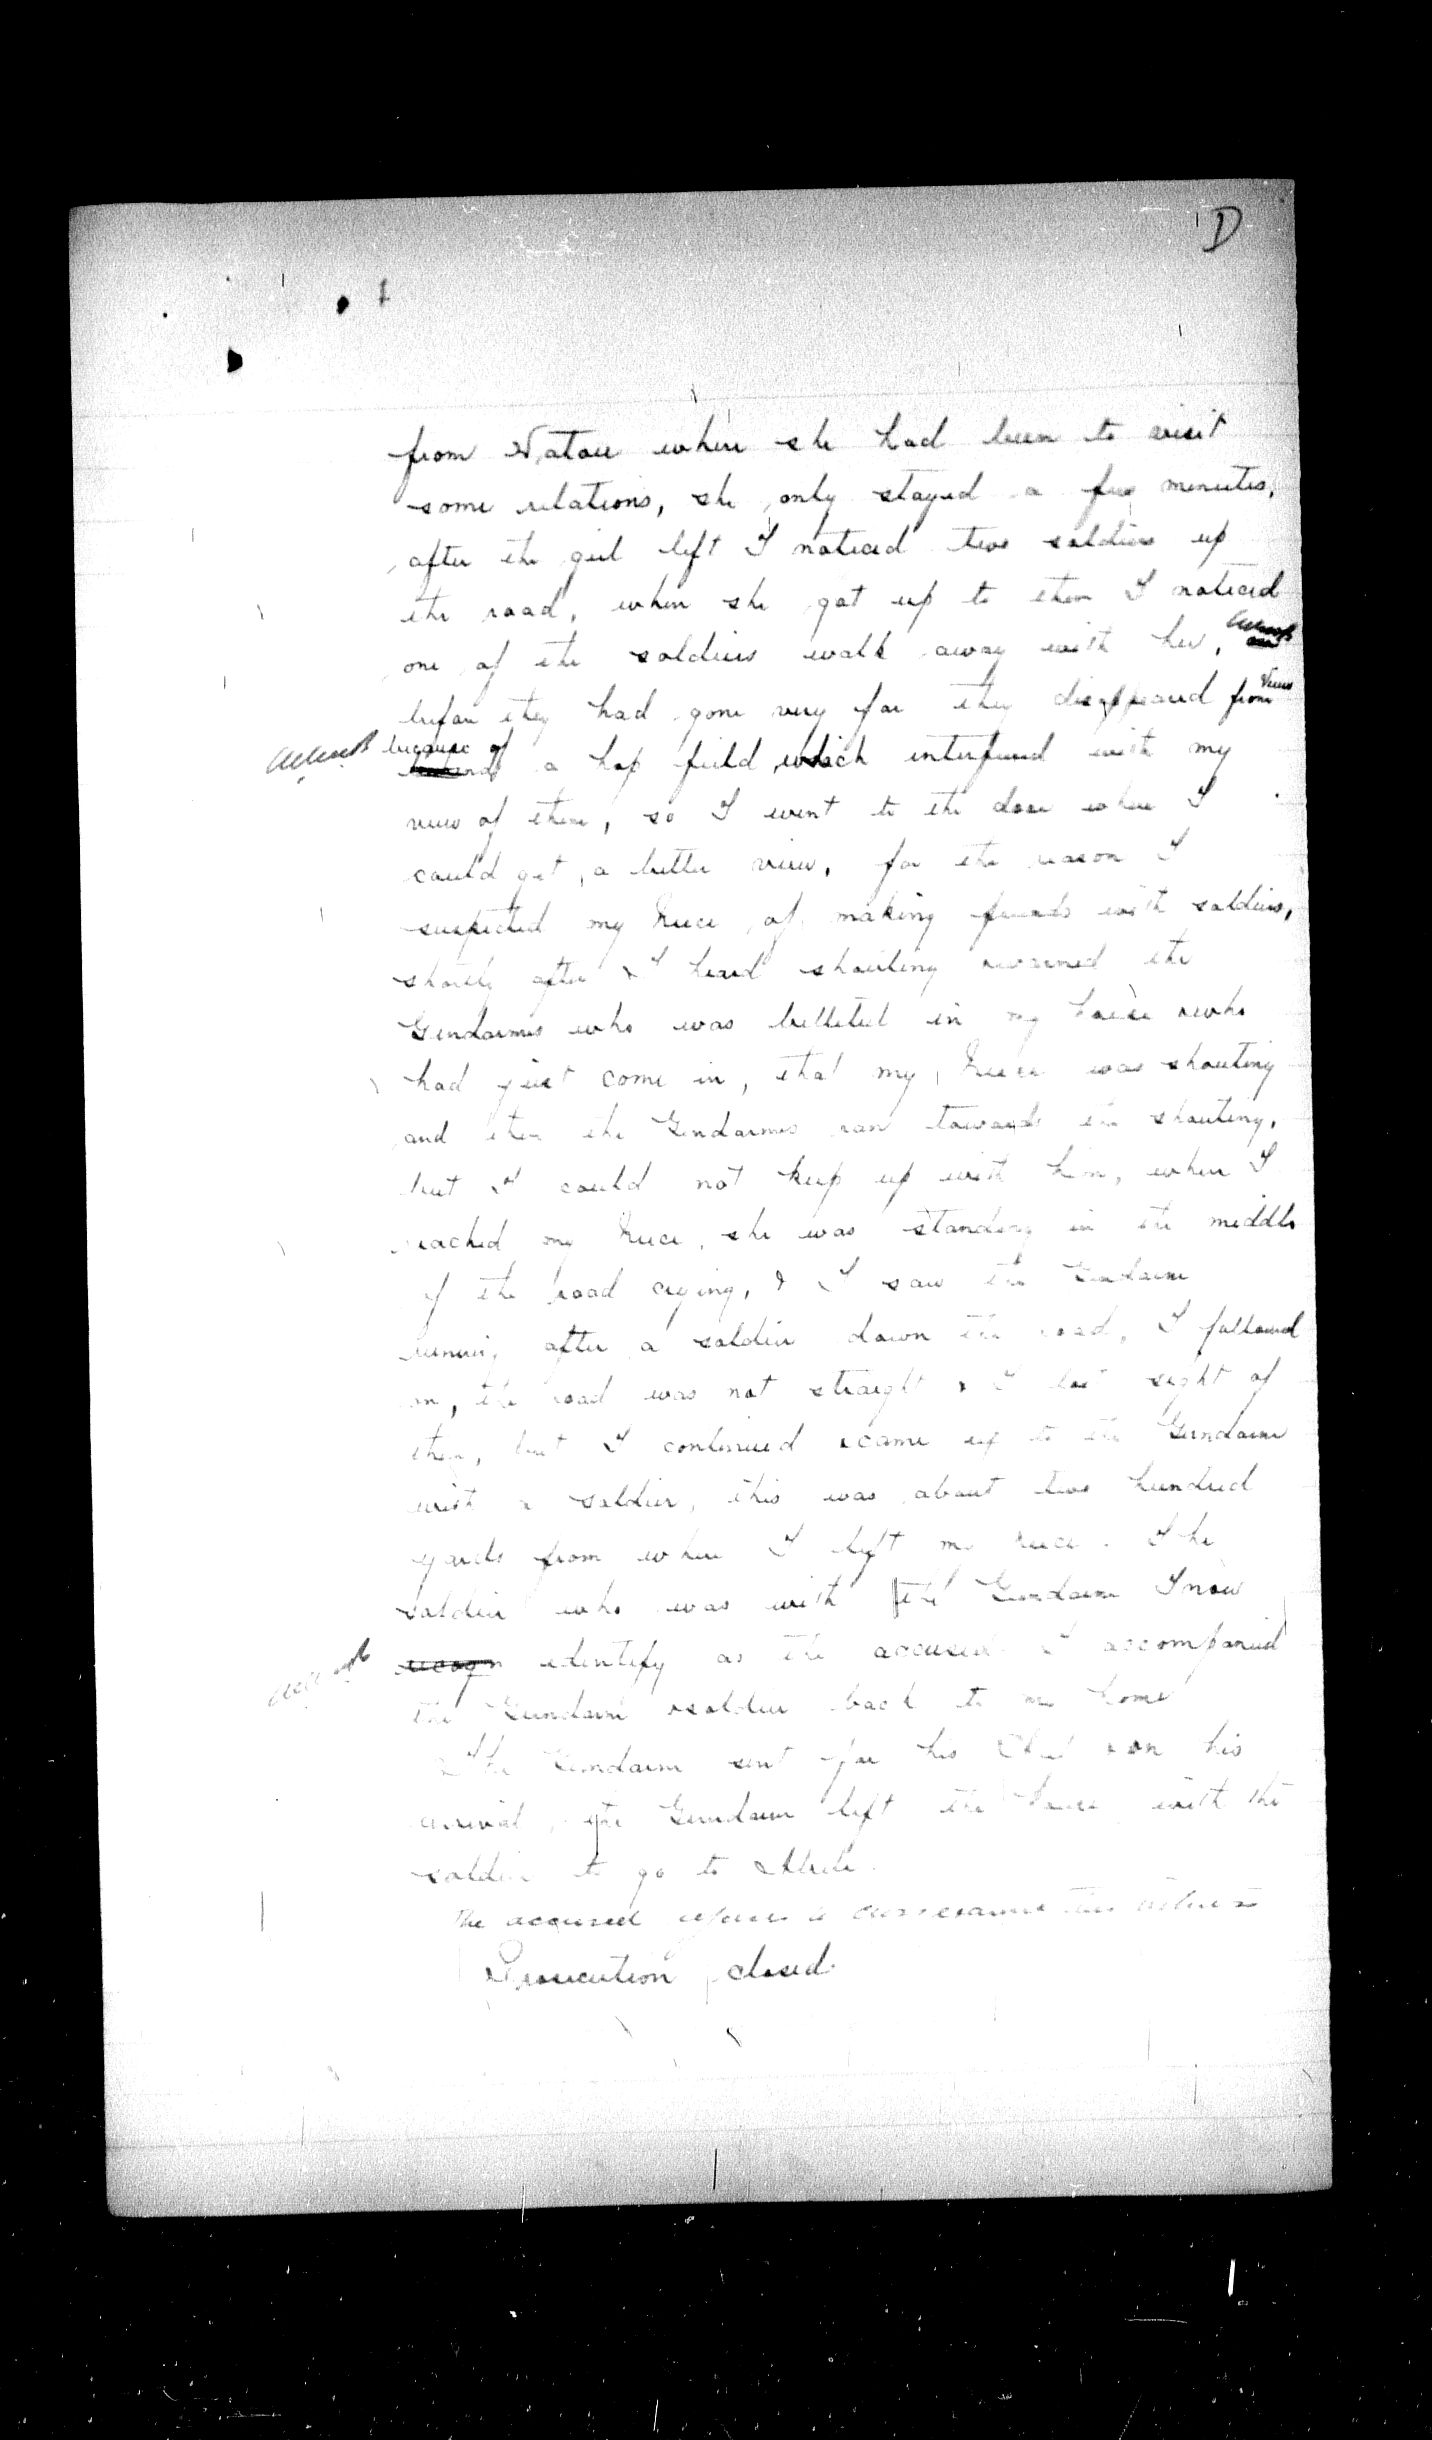 D
from Watou where she had been to visit
some relations, she only stayed a few minutes,
after the girl left I noticed two soldiers up
the road, when she got up to them I noticed
one of the soldiers walk away with her,
before they had gone very far they disappeared from view
because of a hop field which interfered with my
view of them, so I went to the door where I
could get a better view, for the reason I
suspected my Niece of making friends with soldiers,
shortly after I heard shouting & warned the
Gendarmes who was billeted in my house & who
had just come in, that my Niece was shouting
and then the Gendarmes ran towards the shouting,
but I could not keep up with him, when I
reached my Niece, she was standing in the middle
of the road crying, & I saw the Gendarme
running after a soldier down the road, I followed
on, the road was not straight & I lost sight of
them, but I continued & came up to the Gendarme
with a soldier, this was about two hundred
yards from where I left my Niece. The
soldier who was with the Gendarme I now
recogn identify as the accused I accompanied
the Gendarme & soldier back to my home
The Gendarme sent for his Chief & on his
arrival, the Gendarme left the house with the
soldier to go to Abele.
The accused refuses to cross examine this witness
Prosecution closed.